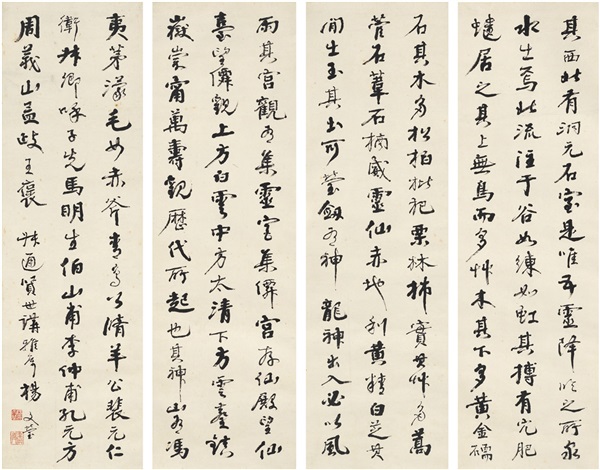 其西北有洞元石室是唯五靈降之所泉
水生焉北流注于谷如練如虹其搏有肥
居之其上無鳥而多艸木其下多黃金礝
石其木多松柏枇杷栗林柿實其艸多蒿
菅石葦石楠葳靈仙赤地利黃精白芝其
間生玉其土可瑩劍有神龍神出入必以風
雨其宮觀有集靈宮集僊宮存仙殿望仙
臺望僊觀上方白雲中方太清下方雲臺鎮
嶽崇甯萬壽觀歷代所起也其神山有馮
夷茅濛毛女赤斧青烏公脩羊公裴元仁
衛叔卿呼子先馬明生伯山甫李仲甫孔元方
周義山孟歧王褒
叔通賢世講雅屬 楊文瑩